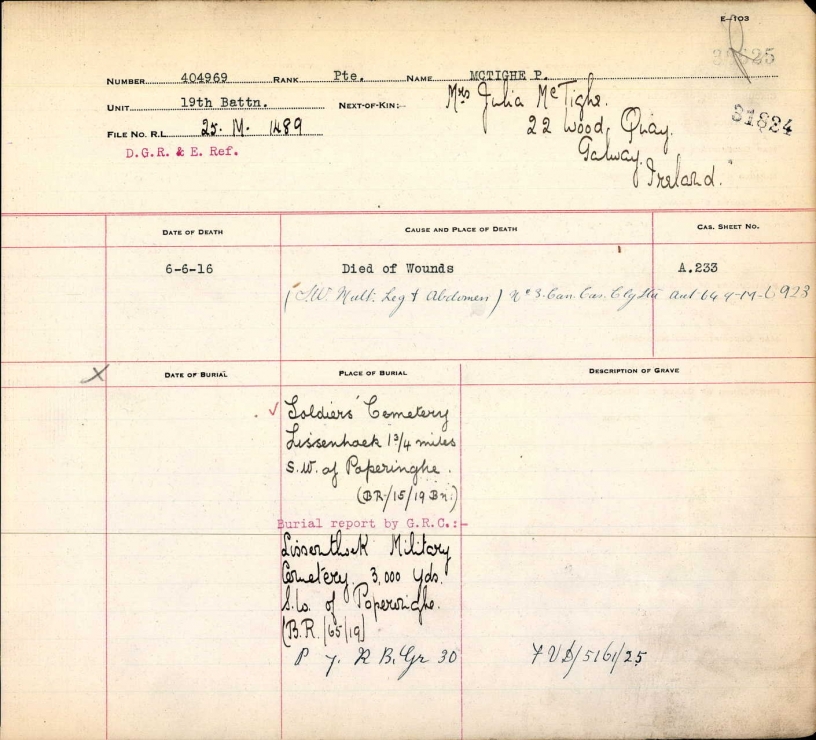 E—103
NUMBER 404969 RANK Pte. NAME MCTIGHE P.
UNIT 19th Battn. NEXT-OF-KIN:- Mrs Julia McTighe.
22 Wood, Quay.
31824
FILE NO. R.L. 25. M. 1489
Galway.
D.G.R. & E. Ref.
Ireland.
DATE OF DEATH CAUSE AND PLACE OF DEATH CAS. SHEET NO.
6-6-16 Died of Wounds A.233
(S.W. Mult. Leg & Abdomen) No 3. Can. Cas. Clg Stn
DATE OF BURIAL PLACE OF BURIAL DESCRIPTION OF GRAVE
Soldiers' Cemetery
Lissenhoek 1 3/4 miles
S.W. of Poperinghe.
(BR/15/19 Bn.)
Burial report by G.R.C.:-
Lissenthoek Military
Cemetery. 3,000 yds.
S.W. of Poperinghe.
(B.R./65/19)
P 7. R B. Gr 30 7 VD/5161/25